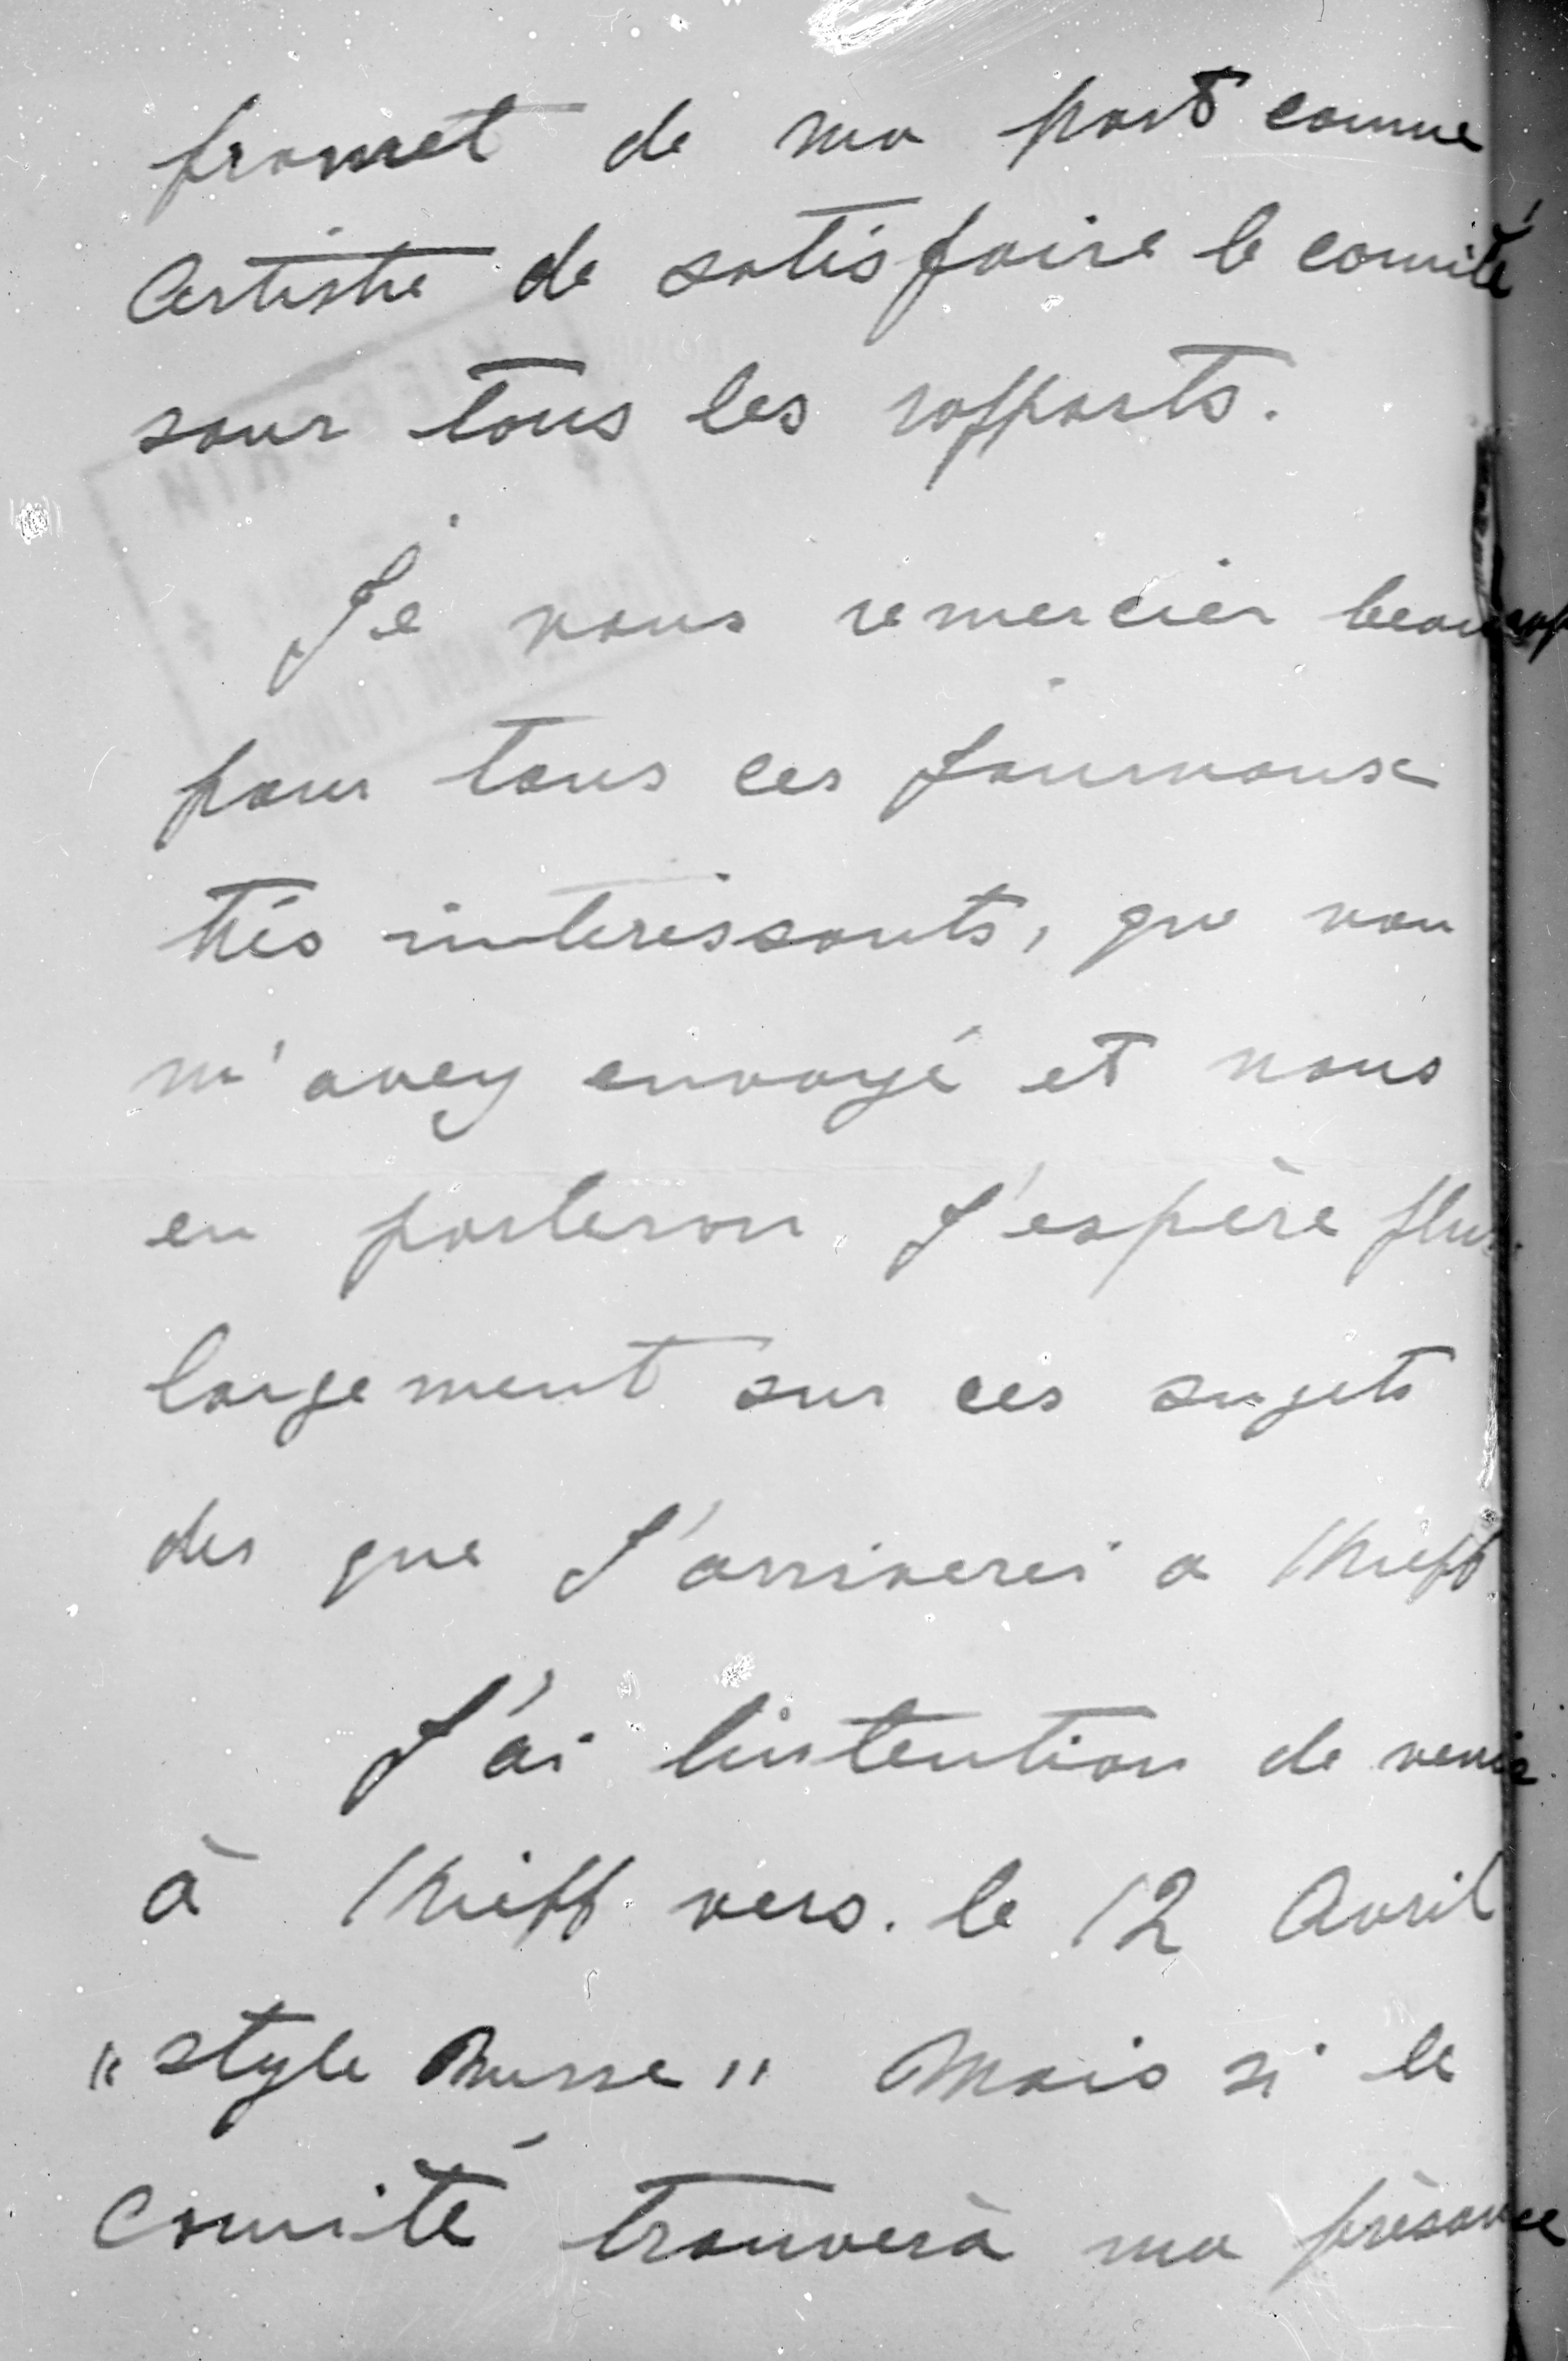 promet de ma part comme
Artiste de satisfaire le comité
sour tous les rapports.
Je vous remercier beaucoup
pour tous ces journaux
très interessants, que vou
m'avez envoyé et nous
en parleron J'espère plus
largement sur ces sujets
des que J'arriverei a Kieff
J'ai lintention de venir
à Kieff vers. le 12 Avril
„style Russe" Mais si le
Comité trouverà ma présance